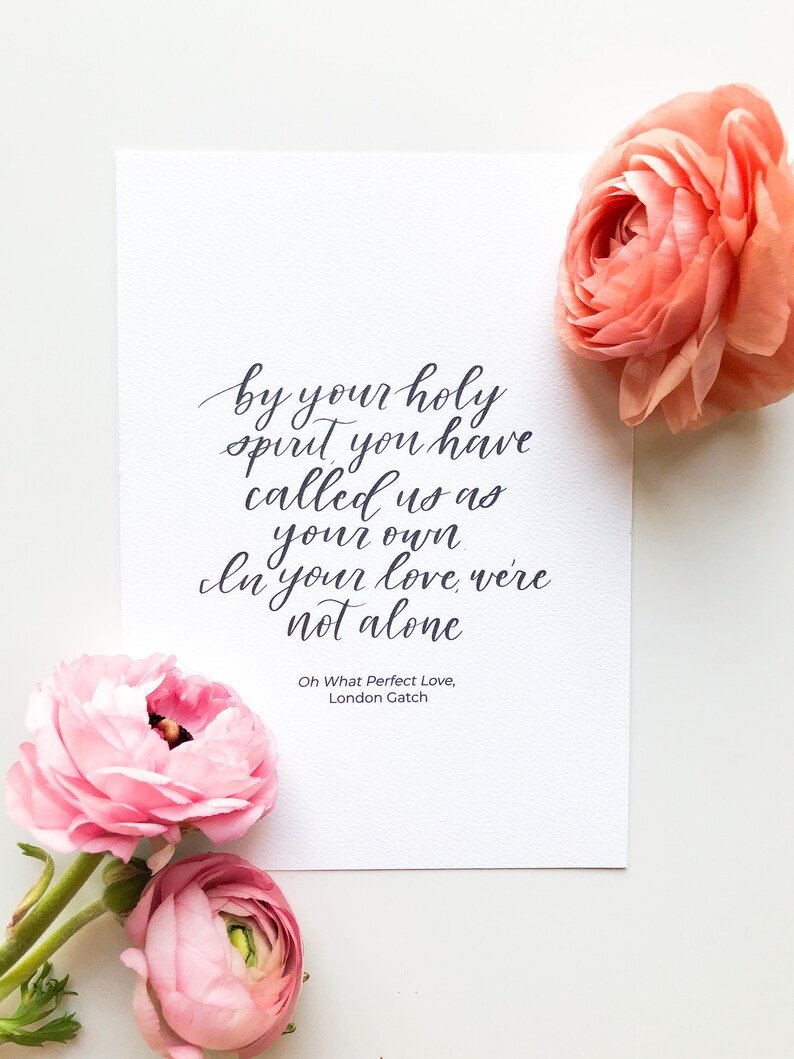 by your holy
spirit, you have
called us as
your own
In your love, we're
not alone
Oh What Perfect Love,
London Gatch